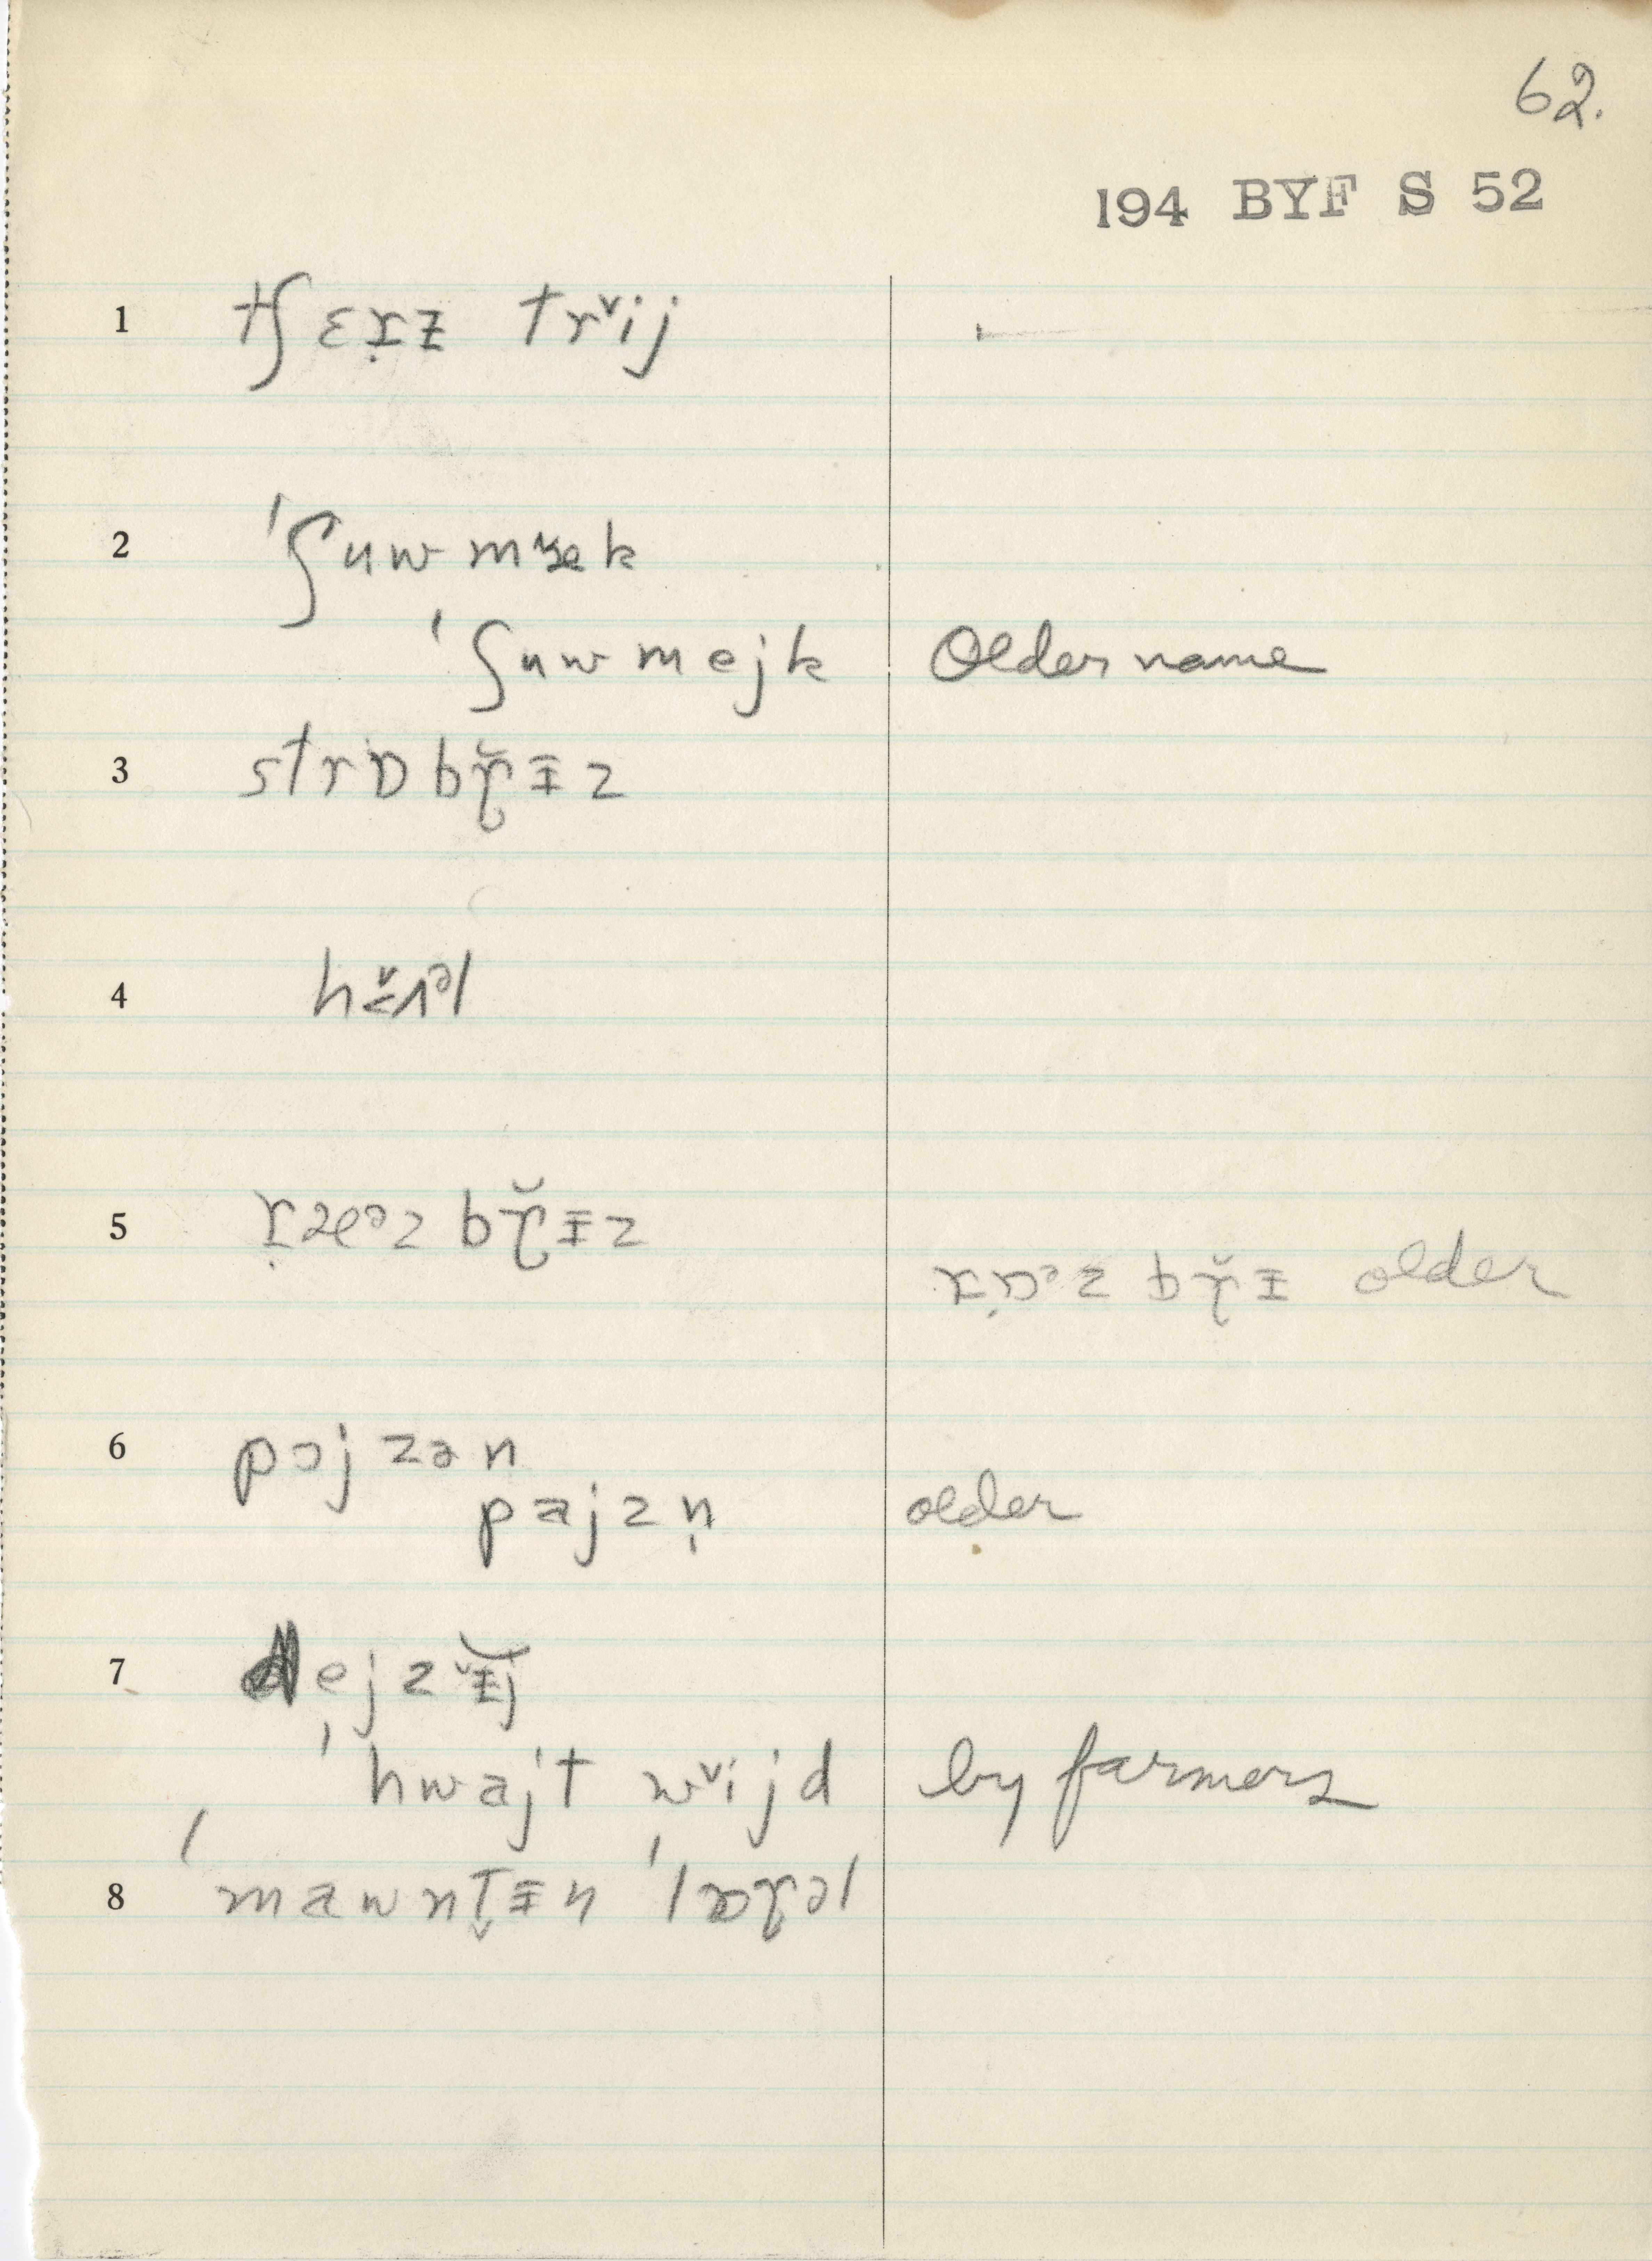 62.
194 BYF S 52
1 tʃɛɪ̣z trˇij
2 ˈʃuwmæk
ˈʃuwmejk Older name
3 strɒbɽ̆ɪz
4
5 bɽ̆ɪz
bɽ̆ɪ older
6 pɔjzən
pajzn̩ older
7 dejzɪ̆j
ˈhwajt wˇijd by farmers
8 ˈmawnt̬ɪn ˈlɒɽəl